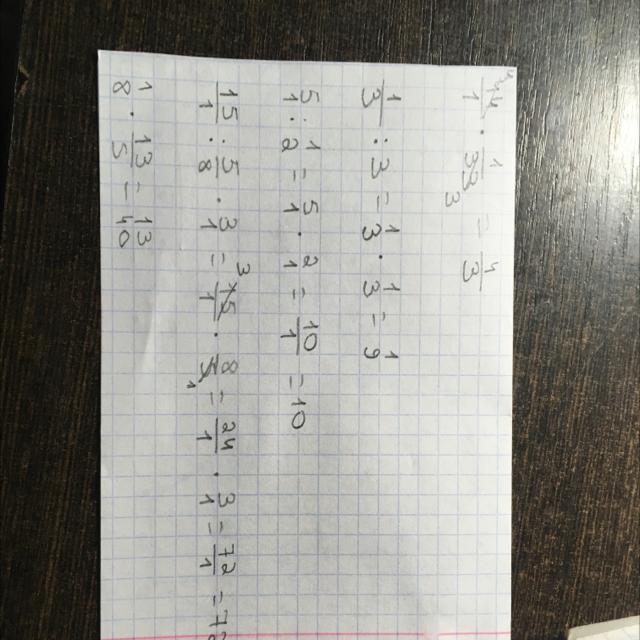 44/1 · 1/33 = 4/3
1/3 : 3 = 1/3 · 1/3 = 1/9
5/1 : 1/2 = 5/1 · 2/1 = 10/1 = 10
15/1 : 5/8 · 3/1 = 15/1 · 8/5 = 24/1 · 3/1 = 72/1 = 72
1/8 · 13/5 = 13/40